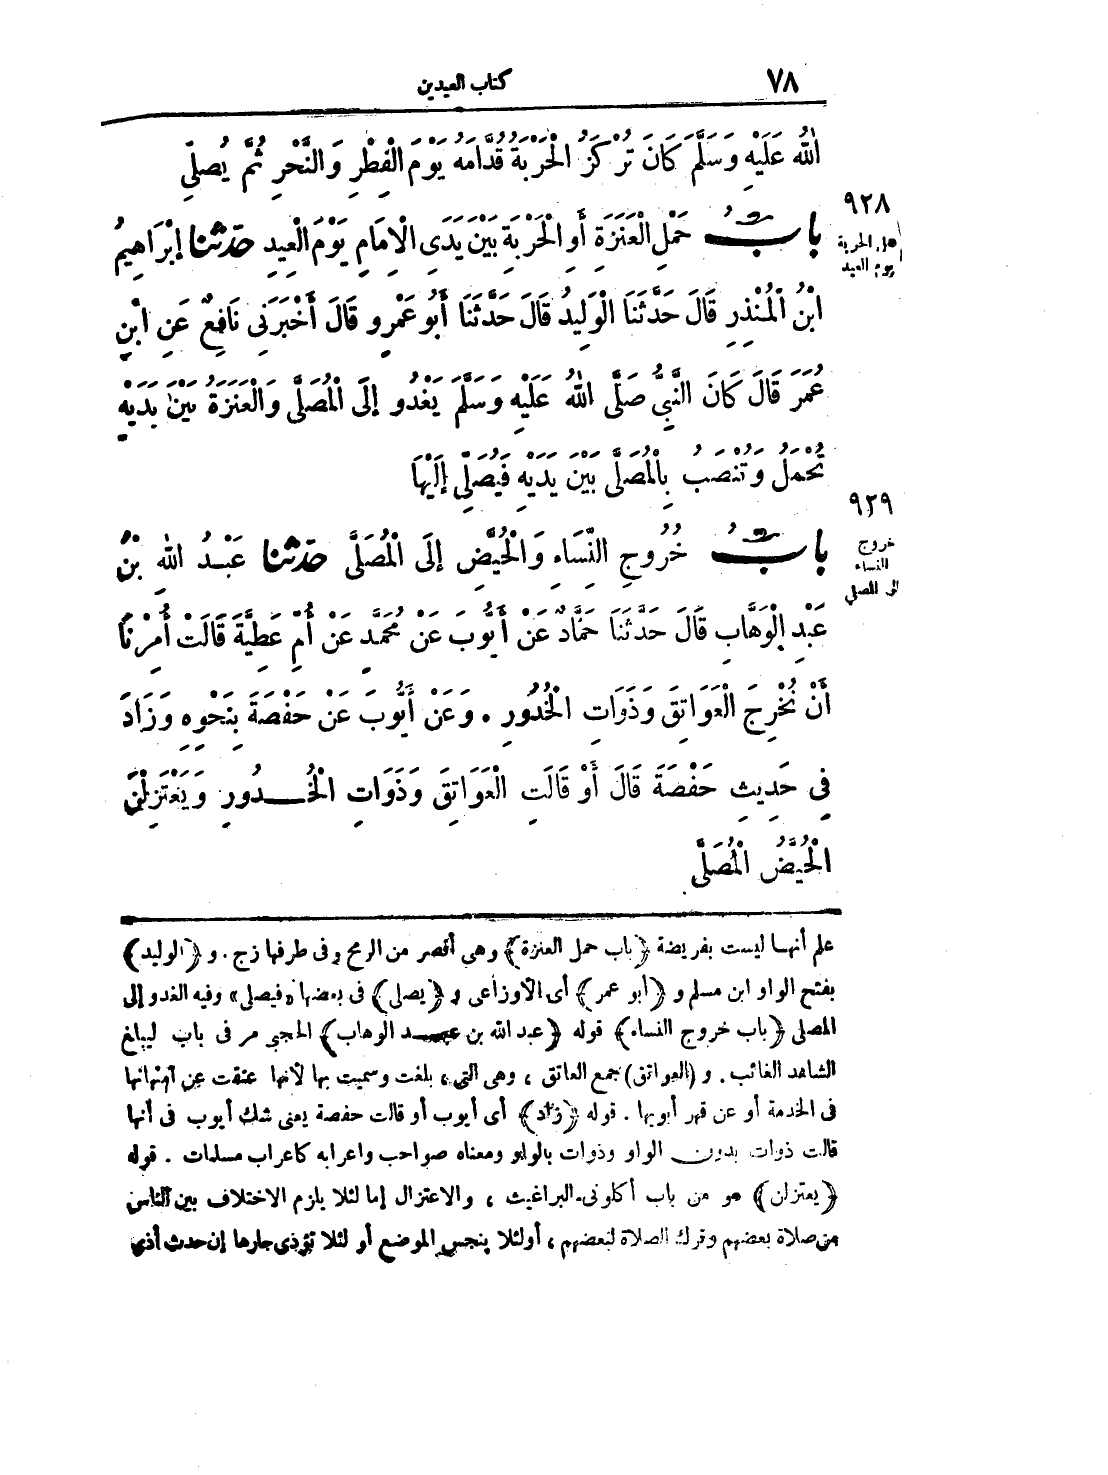 ٧٨
كتاب العيدين
اللهُ عَلَيْهِ وَسَلَّمَ كَانَ تُرْكَزُ الْحَرْبَةُ قُدَّامَهُ يَوْمَ الْفِطْرِ وَالنَّحْرِ ثُمَّ يُصَلِّي
٩٢٨
حمل الحربة
يوم العيد
بَابُ حَمْلِ الْعَنَزَةِ أَوِ الْحَرْبَةِ بَيْنَ يَدَىِ الْإِمَامِ يَوْمَ الْعِيدِ حَدَّثَنَا إِبْرَاهِيمُ
ابْنُ الْمُنْذِرِ قَالَ حَدَّثَنَا الْوَلِيدُ قَالَ حَدَّثَنَا أَبُو عَمْرٍو قَالَ أَخْبَرَنِى نَافِعٌ عَنِ ابْنِ
عُمَرَ قَالَ كَانَ النَّبِىُّ صَلَّى اللهُ عَلَيْهِ وَسَلَّمَ يَغْدُو إِلَى الْمُصَلَّى وَالْعَنَزَةُ بَيْنَ يَدَيْهِ
تُحْمَلُ وَتُنْصَبُ بِالْمُصَلَّى بَيْنَ يَدَيْهِ فَيُصَلِّى إِلَيْهَا
٩٢٩
خروج
النساء
الى المصلى
بَابُ خُرُوجِ النِّسَاءِ وَالْحُيَّضِ إِلَى الْمُصَلَّى حَدَّثَنَا عَبْدُ اللهِ بْنُ
عَبْدِ الْوَهَّابِ قَالَ حَدَّثَنَا حَمَّادٌ عَنْ أَيُّوبَ عَنْ مُحَمَّدٍ عَنْ أُمِّ عَطِيَّةَ قَالَتْ أُمِرْنَا
أَنْ نُخْرِجَ الْعَوَاتِقَ وَذَوَاتِ الْخُدُورِ . وَعَنْ أَيُّوبَ عَنْ حَفْصَةَ بِنَحْوِهِ وَزَادَ
فِى حَدِيثِ حَفْصَةَ قَالَ أَوْ قَالَتِ الْعَوَاتِقَ وَذَوَاتِ الْخُدُورِ وَيَعْتَزِلْنَ
الْحُيَّضُ الْمُصَلَّى
علم أنها ليست بفريضة ﴿باب حمل العنزة﴾ وهى أقصر من الرمح وفى طرفها زج . و﴿الوليد﴾
بفتح الواو ابن مسلم و ﴿أبو عمر﴾ أى الأوزاعى و ﴿يصلى﴾ فى بعضها «فيصلى» وفيه الغدو إلى
المصلى ﴿باب خروج النساء﴾ قوله ﴿عبد الله بن عبد الوهاب﴾ الحجبي مر فى باب ليبلغ
الشاهد الغائب . و ﴿العواتق﴾ جمع العاتق ، وهى التى بلغت وسميت بها لأنها عتقت عن امتهانها
فى الخدمة أو عن قهر أبويها . قوله ﴿زاد﴾ أى أيوب أو قالت حفصة يعنى شك أيوب فى أنها
قالت ذوات بدون الواو وذوات بالواو ومعناه صواحب واعرابه كاعراب مسلمات . قوله
﴿يعتزلن﴾ هو من باب أكلونى البراغيث ، والاعتزال إما لئلا يلزم الاختلاف بين الناس
من صلاة بعضهم وترك الصلاة لبعضهم ، أو لئلا ينجس الموضع أو لئلا تؤذى جارها إن حدث أذى